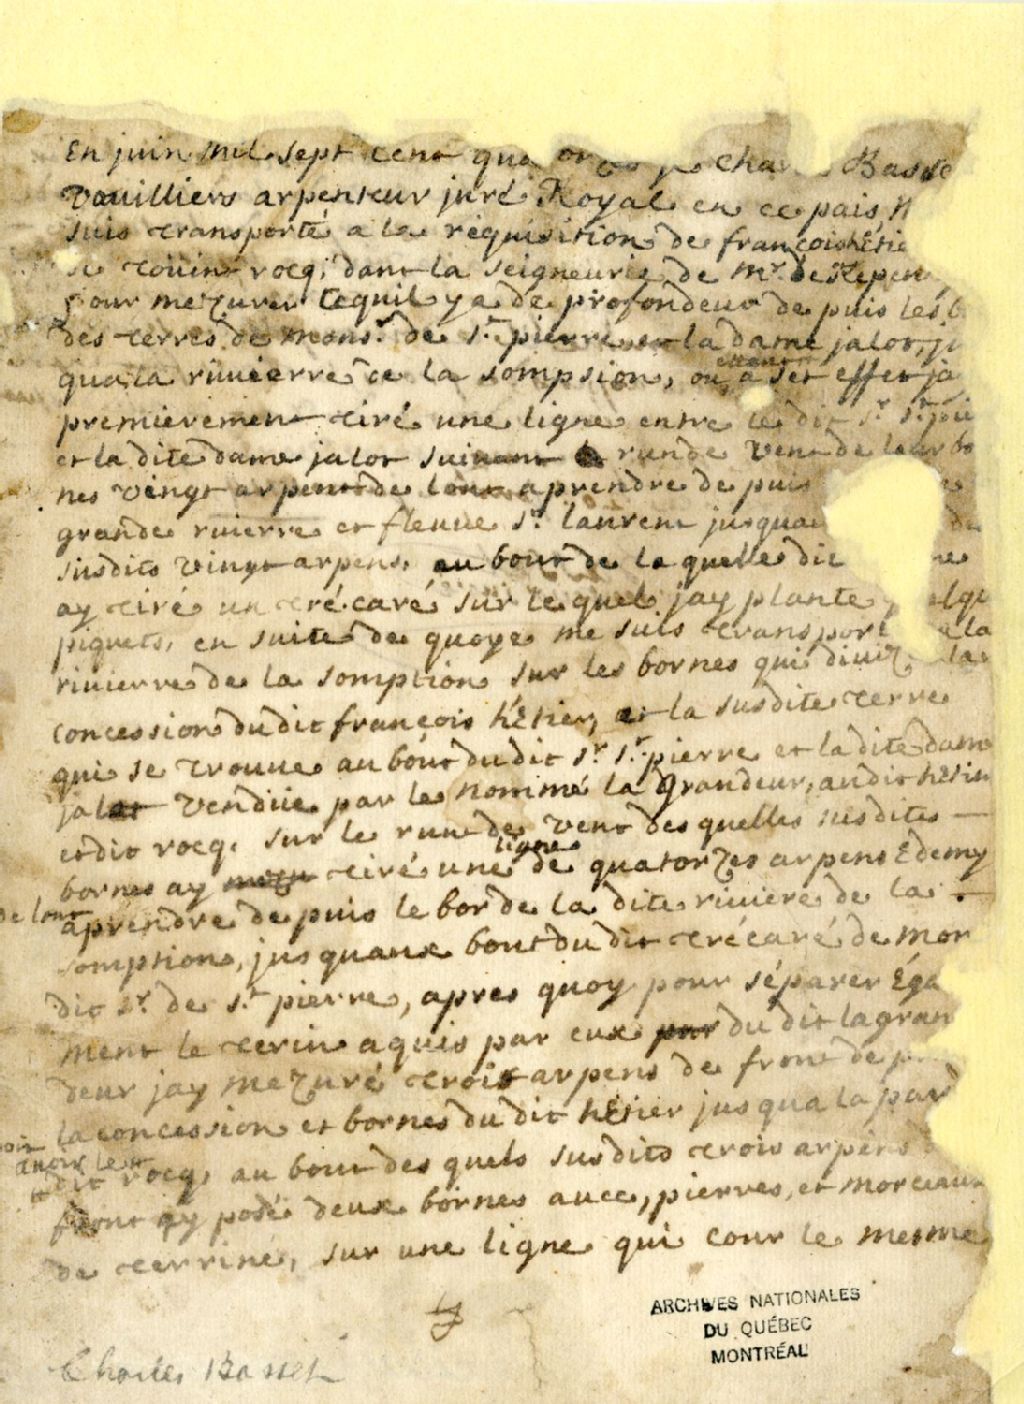 En juin mil sept cent qua je Char Basse
Vouilliers arpenteur juré Royal en ce pais,
suis transporté a la requisition de françois hétie
rocq, dans la seigneurie de Mr. de Repen
pour mezurer ce quil y a de profondeur de puis les b
des terres de Mons.r de s.t pierre et la dame jalot, ju
qua la riuierre de la sompsion, a set effet ja
premierement tiré une ligne entre le dit s.r s.t pie
et la dite dame jalot suiuant runde Vent de leur bo
nes vingt arpent de a prendre de puis
grande riuierre et fleuue s.t laurent jusquau
susdits vingt arpens, au bout de la quelle dit
ay tiré un tré caré sur le quel jay planté quelqu
piquets, en suite de quoye me suis transport la
riuierre de la somption sur les bornes qui diuiz la
concession du dit françois hétier, et la susdite terre
qui se trouue au bout du dit s.r s.t pierre et la dite dame
jalot vendüe par le nommé la Grandeur, audit hétier
et dit rocq. sur le run de vent des quelles susdites —
bornes ay tiré une ligne de quatorzes arpens Edemy
a prendre de puis le bor de la dite riuiere de la
somption, jusquaux bout du dit trécaré de mon
dit s.r de s.t pierre, apres quoy pour séparer Éga
ment le terin aquis par eux du dit la gran
deur jay mezuré trois arpens de front de p
la concession et bornes du dit hétier jusqua la par
dit rocq, au bout des quels susdits trois arpens
front ay posée deux bornes auec, pierres, et morceaux
de terriné, sur une ligne qui cour le mesme
Charles Basset
ARCHIVES NATIONALES
DU QUÉBEC
MONTRÉAL